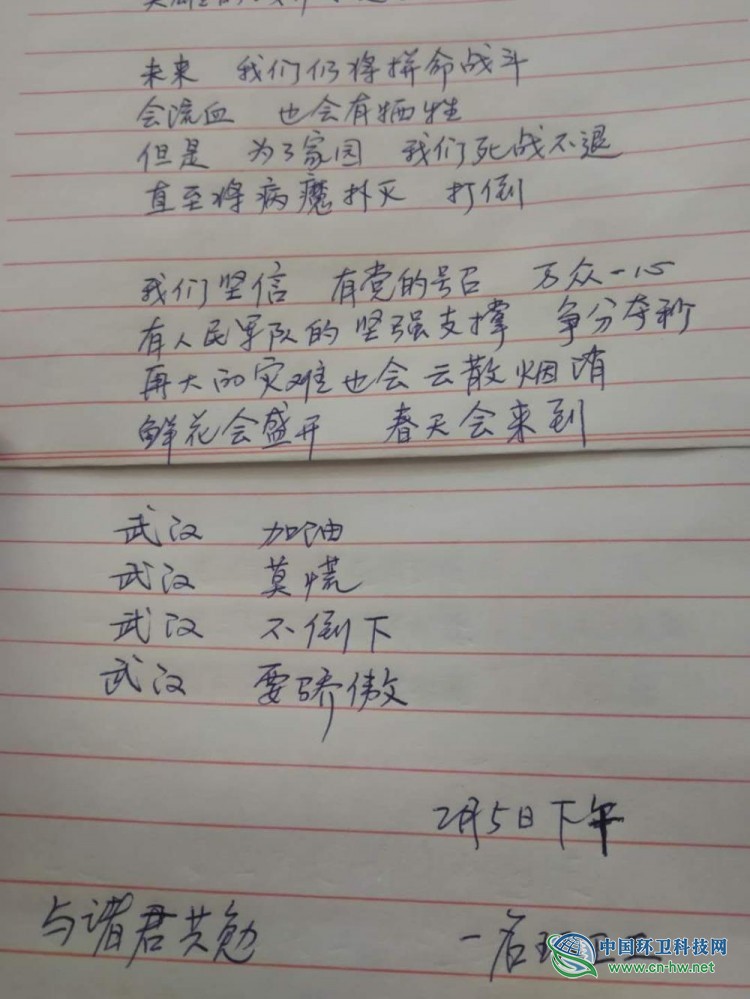 未来 我们仍将拼命战斗
会流血 也会有牺牲
但是 为了家园 我们死战不退
直至将病魔扑灭 打倒
我们坚信 有党的号召 万众一心
有人民军队的坚强支撑 争分夺秒
再大的灾难也会云散烟消
鲜花会盛开 春天会来到
武汉 加油
武汉 莫慌
武汉 不倒下
武汉 要骄傲
2月5日下午
与诸君共勉
一名环卫工
中国环卫科技网
www.cn-hw.net